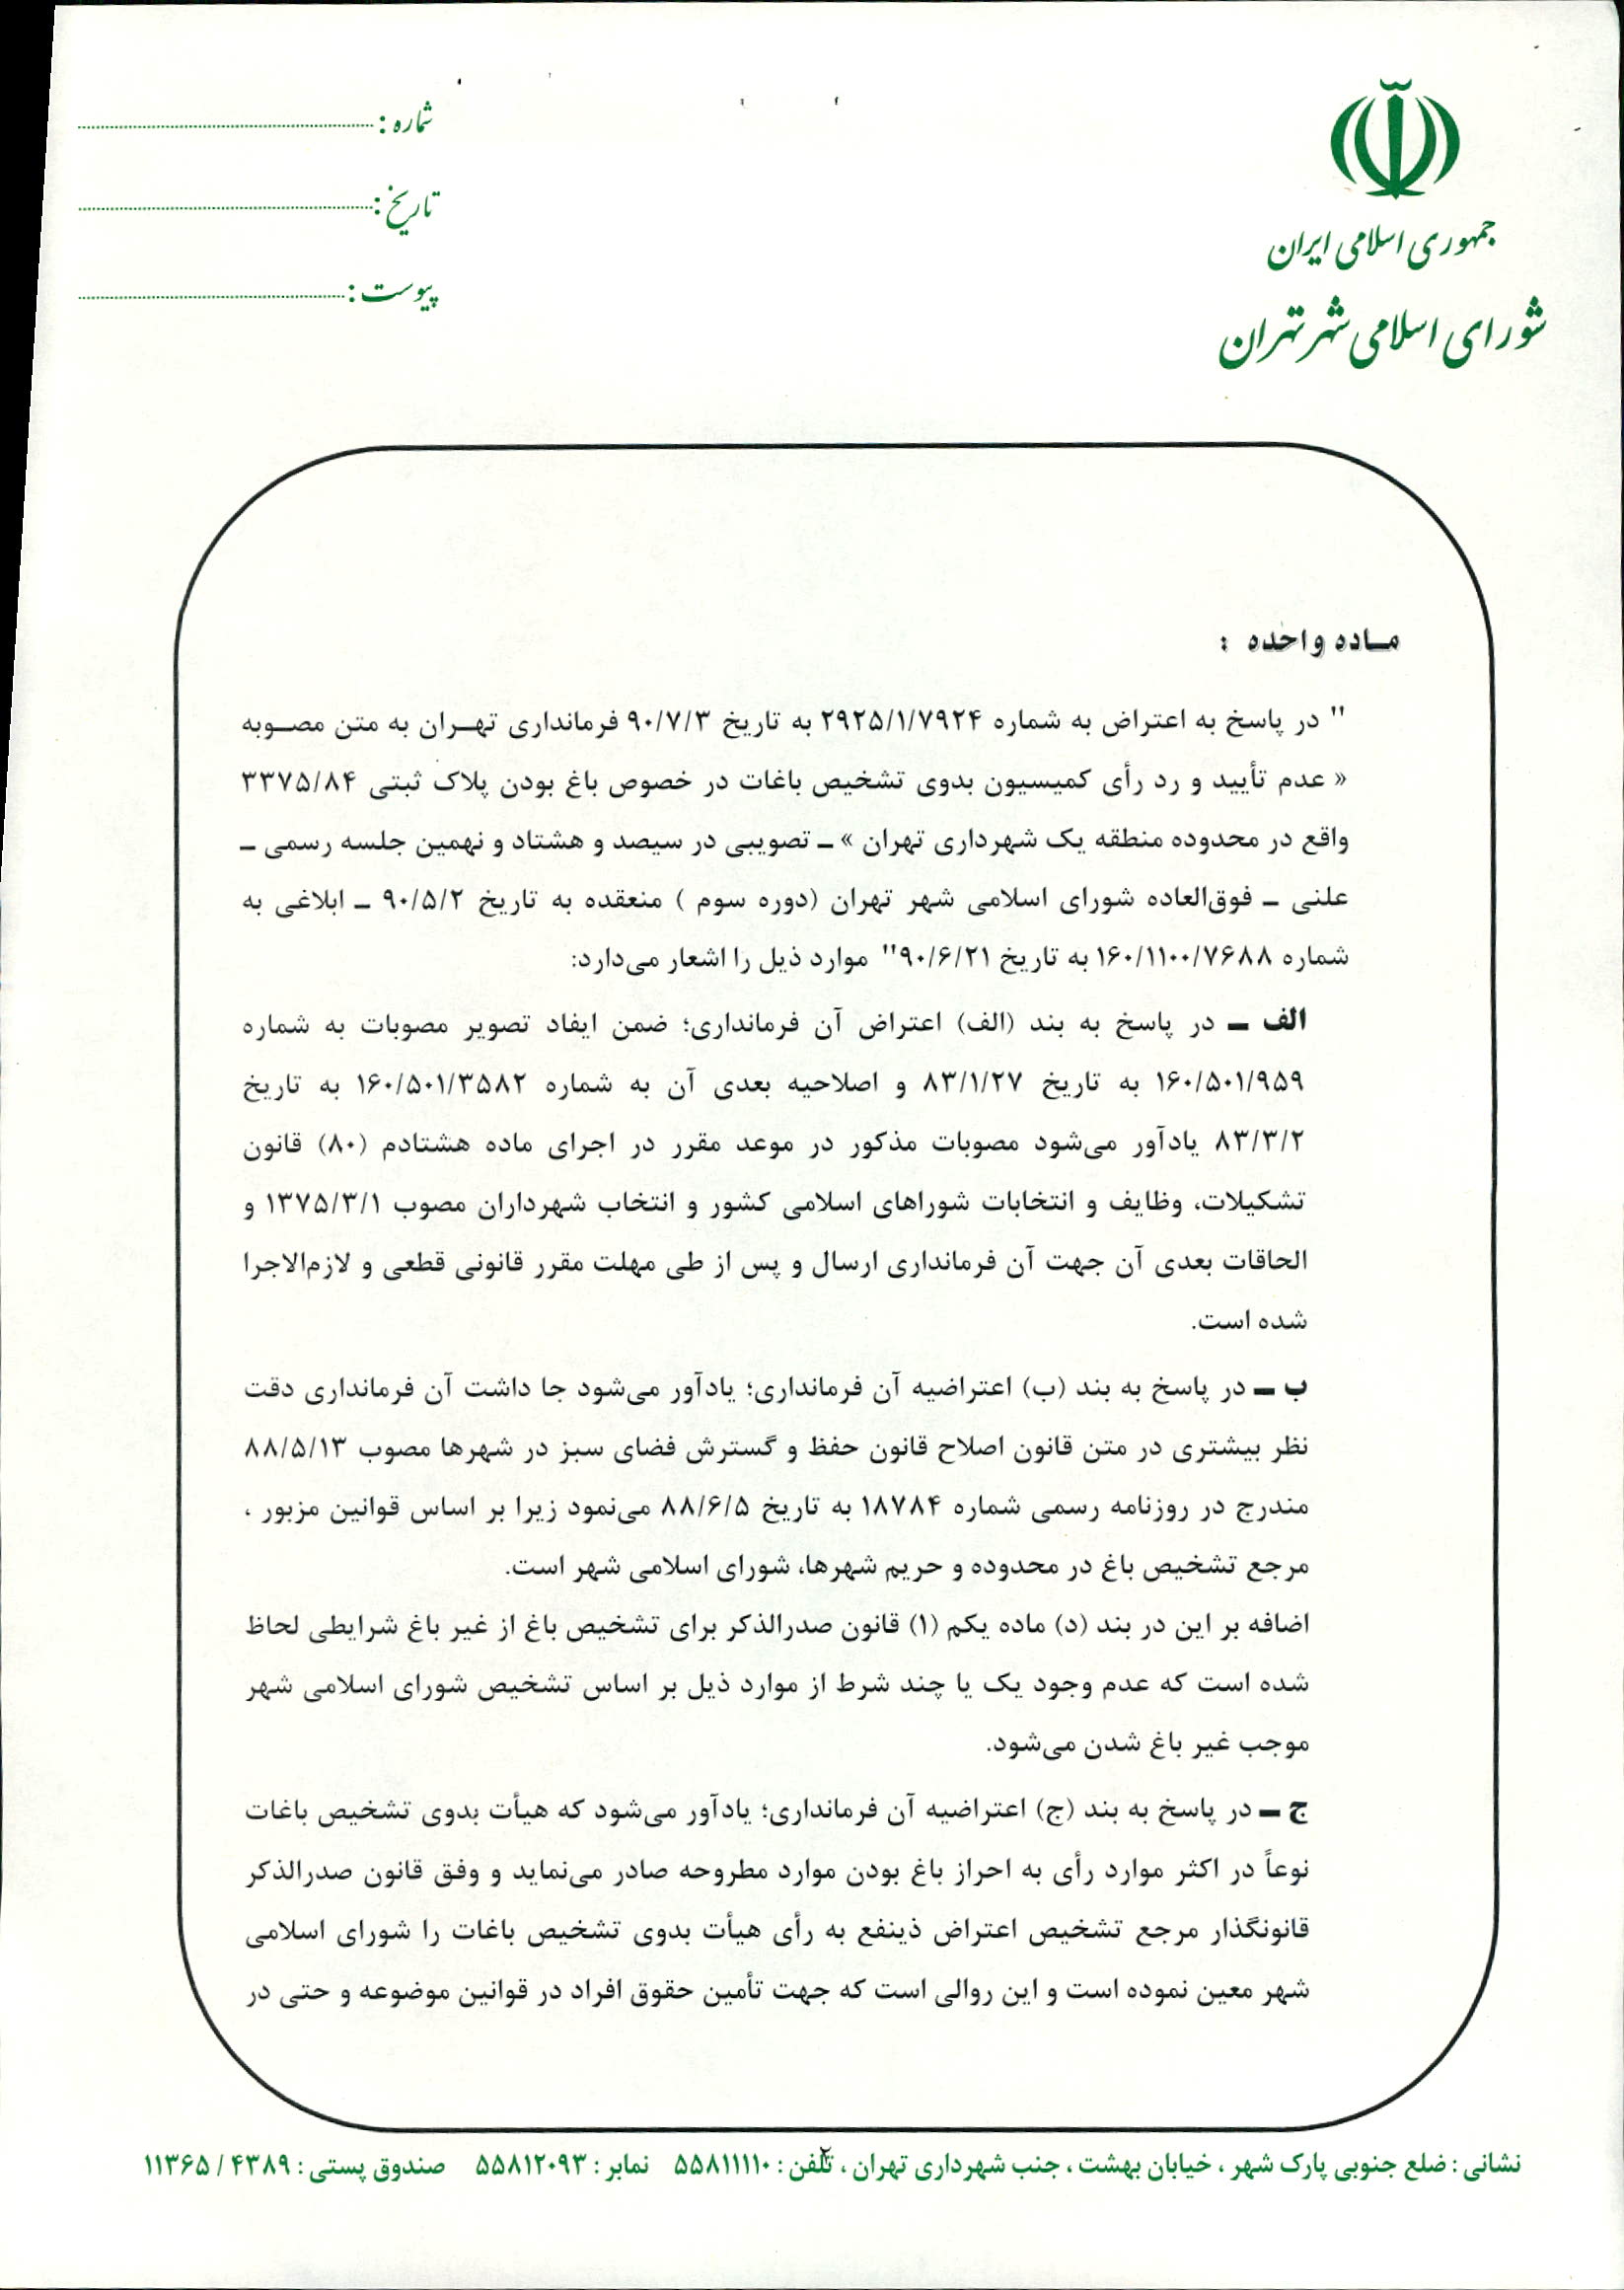 جمهوری اسلامی ایران
شورای اسلامی شهر تهران
شماره :
تاریخ :
پیوست :
مـاده واحده :
" در پاسخ به اعتراض به شماره ۲۹۲۵/۱/۷۹۲۴ به تاریخ ۹۰/۷/۳ فرمانداری تهـران به متن مصـوبه
« عدم تأیید و رد رأی کمیسیون بدوی تشخیص باغات در خصوص باغ بودن پلاک ثبتی ۳۳۷۵/۸۴
واقع در محدوده منطقه یک شهرداری تهران » ـ تصویبی در سیصد و هشتاد و نهمین جلسه رسمی ـ
علنی ـ فوق‌العاده شورای اسلامی شهر تهران (دوره سوم ) منعقده به تاریخ ۹۰/۵/۲ ـ ابلاغی به
شماره ۱۶۰/۱۱۰۰/۷۶۸۸ به تاریخ ۹۰/۶/۲۱" موارد ذیل را اشعار می‌دارد:
الف ـ در پاسخ به بند (الف) اعتراض آن فرمانداری؛ ضمن ایفاد تصویر مصوبات به شماره
۱۶۰/۵۰۱/۹۵۹ به تاریخ ۸۳/۱/۲۷ و اصلاحیه بعدی آن به شماره ۱۶۰/۵۰۱/۳۵۸۲ به تاریخ
۸۳/۳/۲ یادآور می‌شود مصوبات مذکور در موعد مقرر در اجرای ماده هشتادم (۸۰) قانون
تشکیلات، وظایف و انتخابات شوراهای اسلامی کشور و انتخاب شهرداران مصوب ۱۳۷۵/۳/۱ و
الحاقات بعدی آن جهت آن فرمانداری ارسال و پس از طی مهلت مقرر قانونی قطعی و لازم‌الاجرا
شده است.
ب ـ در پاسخ به بند (ب) اعتراضیه آن فرمانداری؛ یادآور می‌شود جا داشت آن فرمانداری دقت
نظر بیشتری در متن قانون اصلاح قانون حفظ و گسترش فضای سبز در شهرها مصوب ۸۸/۵/۱۳
مندرج در روزنامه رسمی شماره ۱۸۷۸۴ به تاریخ ۸۸/۶/۵ می‌نمود زیرا بر اساس قوانین مزبور ،
مرجع تشخیص باغ در محدوده و حریم شهرها، شورای اسلامی شهر است.
اضافه بر این در بند (د) ماده یکم (۱) قانون صدرالذکر برای تشخیص باغ از غیر باغ شرایطی لحاظ
شده است که عدم وجود یک یا چند شرط از موارد ذیل بر اساس تشخیص شورای اسلامی شهر
موجب غیر باغ شدن می‌شود.
ج ـ در پاسخ به بند (ج) اعتراضیه آن فرمانداری؛ یادآور می‌شود که هیأت بدوی تشخیص باغات
نوعاً در اکثر موارد رأی به احراز باغ بودن موارد مطروحه صادر می‌نماید و وفق قانون صدرالذکر
قانونگذار مرجع تشخیص اعتراض ذینفع به رأی هیأت بدوی تشخیص باغات را شورای اسلامی
شهر معین نموده است و این روالی است که جهت تأمین حقوق افراد در قوانین موضوعه و حتی در
۲
نشانی : ضلع جنوبی پارک شهر ، خیابان بهشت ، جنب شهرداری تهران ، تلفن : ۵۵۸۱۱۱۱۰ نمابر : ۵۵۸۱۲۰۹۳ صندوق پستی : ۴۳۸۹ / ۱۱۳۶۵